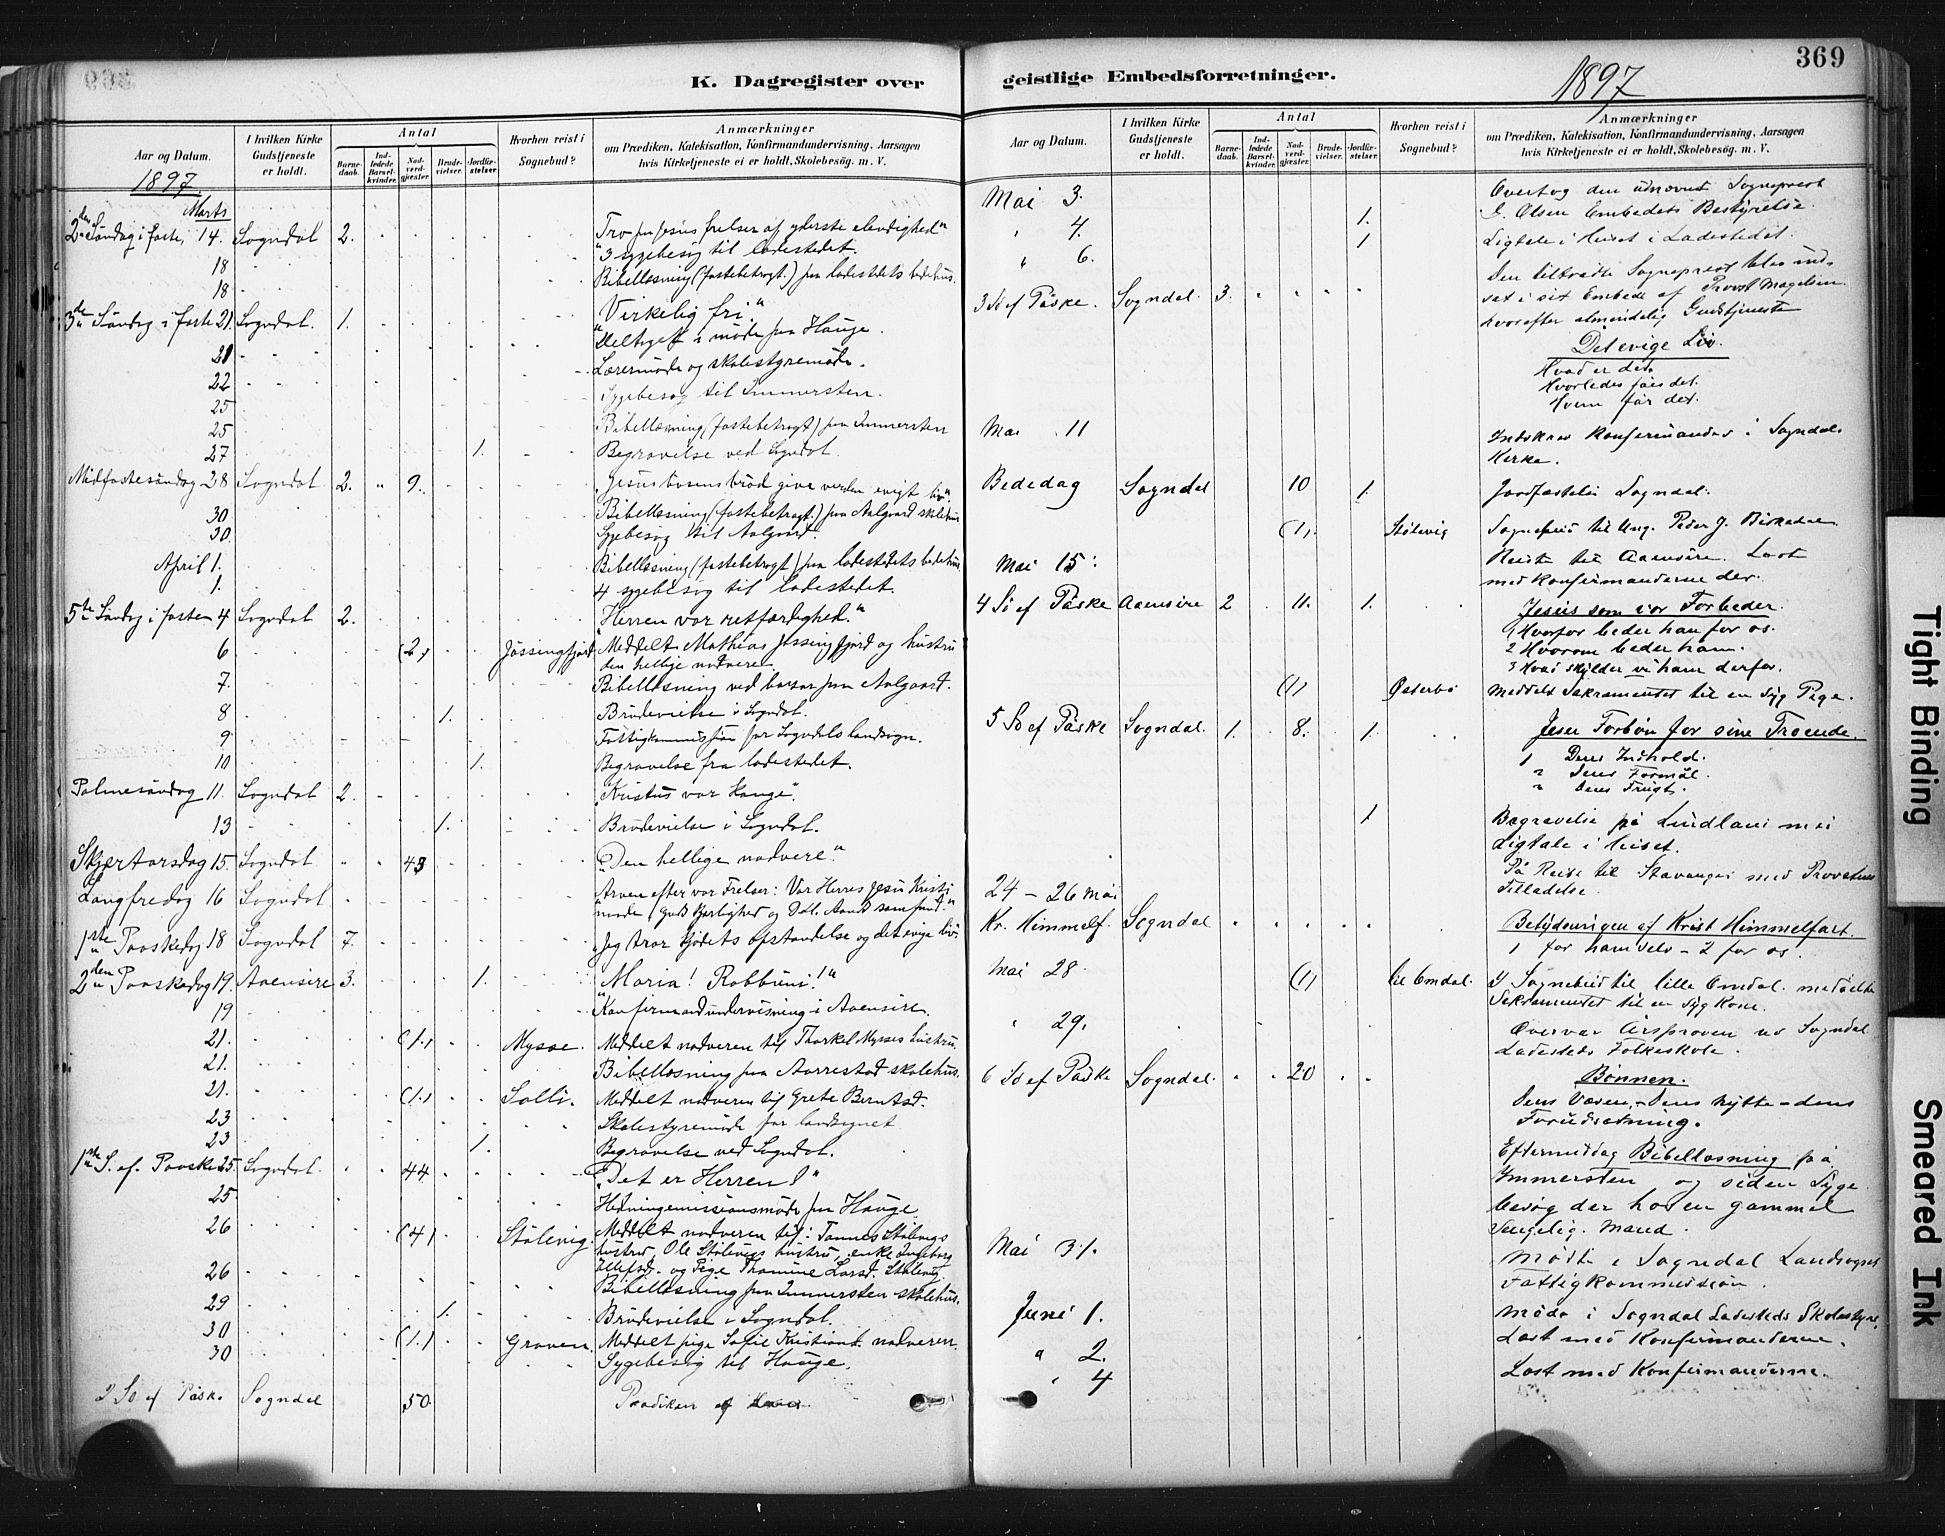 K. Dagregister over
Aar og Datum.
I hvilken Kirke Gudstjeneste er holdt.
Antal
Barnedaab.
Indledede Barselkvinder.
Nadverdgjæster.
Brudevielser.
Jordfæstelser
Hvorhen reist i Sognebud?
Anmærkninger
om Prædiken, Katekisation, Konfirmandundervisning, Aarsagen
hvis Kirketjeneste ei er holdt, Skolebesøg. m. V.
1897.
Marts
2den Søndag i faste, 14. Sogndal 2. Tro paa Jesus frelser af yderste elendighed"
18 "3 sygebesøg til ladestedet.
18 Bibellæsning (fastebetragt.) paa ladestedets bedehus.
3die Søndag i faste 21. Sogndal. 1. "Virkelig fri."
21 Deltaget i møde paa Hauge.
22 Lærermøde og skolestyremøde.
25 Sygebesøg til Immersten.
25 Bibellæsning (fastebetragt.) paa Immersten
27 1. Begravelse ved Sogndal.
Midfastesøndag 28 Sogndal 2. " 9. "Jesus livsens brød give verden evigt liv".
30 Bibellæsning (fastebetragt.) paa Aalgaard skolehus
30. Sygebesøg til Aalgaard.
April 1. Bibellæsning (fastebetragt) paa ladestedets bedehus.
1. 4 sygebesøg til ladestedet.
5te Søndag i fasten 4 Sogndal 2. "Herren vor retfærdighed."
6 (2) Jøssingfjord Meddelt Mathias Jøssingfjord og hustru
den hellige nadvere.
7. Bibellæsning ved basar paa Aalgaard.
8 1. Brudevielse i Sogndal.
9 Fattigkommission for Sogndals landsogn.
10 1. Begravelse fra ladestedet.
Palmesøndag 11. Sogndal 2. "Kristus vor Konge".
13 1. Brudevielse i Sogndal.
Skjærtorsdag 15. Sogndal " " 43 "Den hellige nadvere."
Langfredag 16 Sogndal Arven efter vor Frelser: Vor Herres Jesu Kristi
naade, Guds kjærlighed og D. H. Aands samfund."
1ste Paaskedag 18 Sogndal 7. "Jeg tror kjødets opstandelse og det evige liv".
2den Paaskedag 19. Aaensire 3. 1. "Maria! Rabbuni!"
19 Konfirmandundervisning i Aaensire.
21. (1.) Mysse. Meddelt nadveren til Thorkel Mysses hustru.
21. Bibellæsning paa Aarrestad skolehus.
21. (1.) Solli. Meddelt nadveren til Grete Berntsd.
23 Skolestyremøde for landsognet
23 1. Begravelse ved Sogndal.
1ste S. ef. Paaske 25 Sogndal. 44 "Det er Herren!"
25 Hedningemissionsmøde paa Hauge.
26 (4) Stølevig. Meddelt nadveren til: Tønnes Stølevigs
hustru, Ole Stølevigs hustru, enke Ingeborg
og Pige Thomine Larsd. Stølevig.
26 Bibellæsning paa Immersten skolehus.
29 1. Brudevielse i Sogndal.
30 (1.) Graven. Meddelt pige Sofie Kristiansd. nadveren.
30 Sygebesøg til Hauge.
2 Sø ef Påske Sogndal 50. Prædiken af

geistlige Embedsforretninger.
1897
369
Aar og Datum.
I hvilken Kirke Gudstjeneste er holdt.
Antal
Barnedaab.
Indledede Barselkvinder.
Nadverdgjæster.
Brudevielser.
Jordfæstelser.
Hvorhen reist i Sognebud?
Anmærkninger
om Prædiken, Katekisation, Konfirmandundervisning, Aarsagen
hvis Kirketjeneste ei er holdt, Skolebesøg. m. V.
Mai 3. Overtog den udnævnte Sogneprest
Olsen Embedets Bestyrelse.
" 4. 1. Ligtale i Huset i Ladestedet.
" 6. 1
3 Sø ef Påske. Sogndal. 3. Den tiltrådte Sogneprest blev ind-
sat i sit Embede af Provst Magelsen
hvorefter almindelig Gudstjeneste
Det evige Liv.
Hvad er det.
Hvorledes fåes det.
Hvem får det.
Mai 11 Indskrev Konfirmander i Sogndal
Kirke.
Bededag Sogndal 10 1. Jordfæstelse Sogndal.
(1). Stölevig Sognebud til Ung. Peder J.
Mai 15. Reiste til Aaensire. Læst
med Konfirmanderne der.
4 Sø ef Påske Aaensire 2 11. 1. Jesus som vor Forbeder.
1 Hvorfor beder han for os.
2 Hvorom beder ham.
3 Hvad skylder vi ham derfor.
(1) Østerbø Meddelt Sakramentet til en syg Pige.
5 Sø ef Påske Sogndal. 1. 8. 1. Jesu Forbøn for sine Troende.
1 Dens Indhold.
" Dens Formål.
" Dens Frugt.
1 Begravelse på Lindland med
Ligtale i Huset.
24 - 26 Mai På Reise til Stavanger med Provstens
Tilladelse.
Kr. Himmelf. Sogndal Betydningen af Krist Himmelfart.
1 for ham selv - 2 for os.
Mai 28. (1) lille Omdal. I Sognebud til lille Omdal. meddelte
Sakramentet til en syg Kone.
" 29. Overvar Årsprøven ved Sogndal
Ladesteds Folkeskole.
6 Sø ef Påske Sogndal. 20 Bønnen.
Dens Væsen, - Dens Nytte - dens
Forudsætning.
Eftermiddag Bibellæsning på
Immersten og siden Syge
besøg der hos en gammel
sengelig. Mand.
Mai 31. Møde i Sogndal Landsogns
Fattigkommission.
Juni 1. Møde i Sogndal Ladesteds Skolestyre.
" 2. Læst med Konfirmanderne.
" 4 Læst med Konfirmanderne.
Tight Binding
Smeared Ink